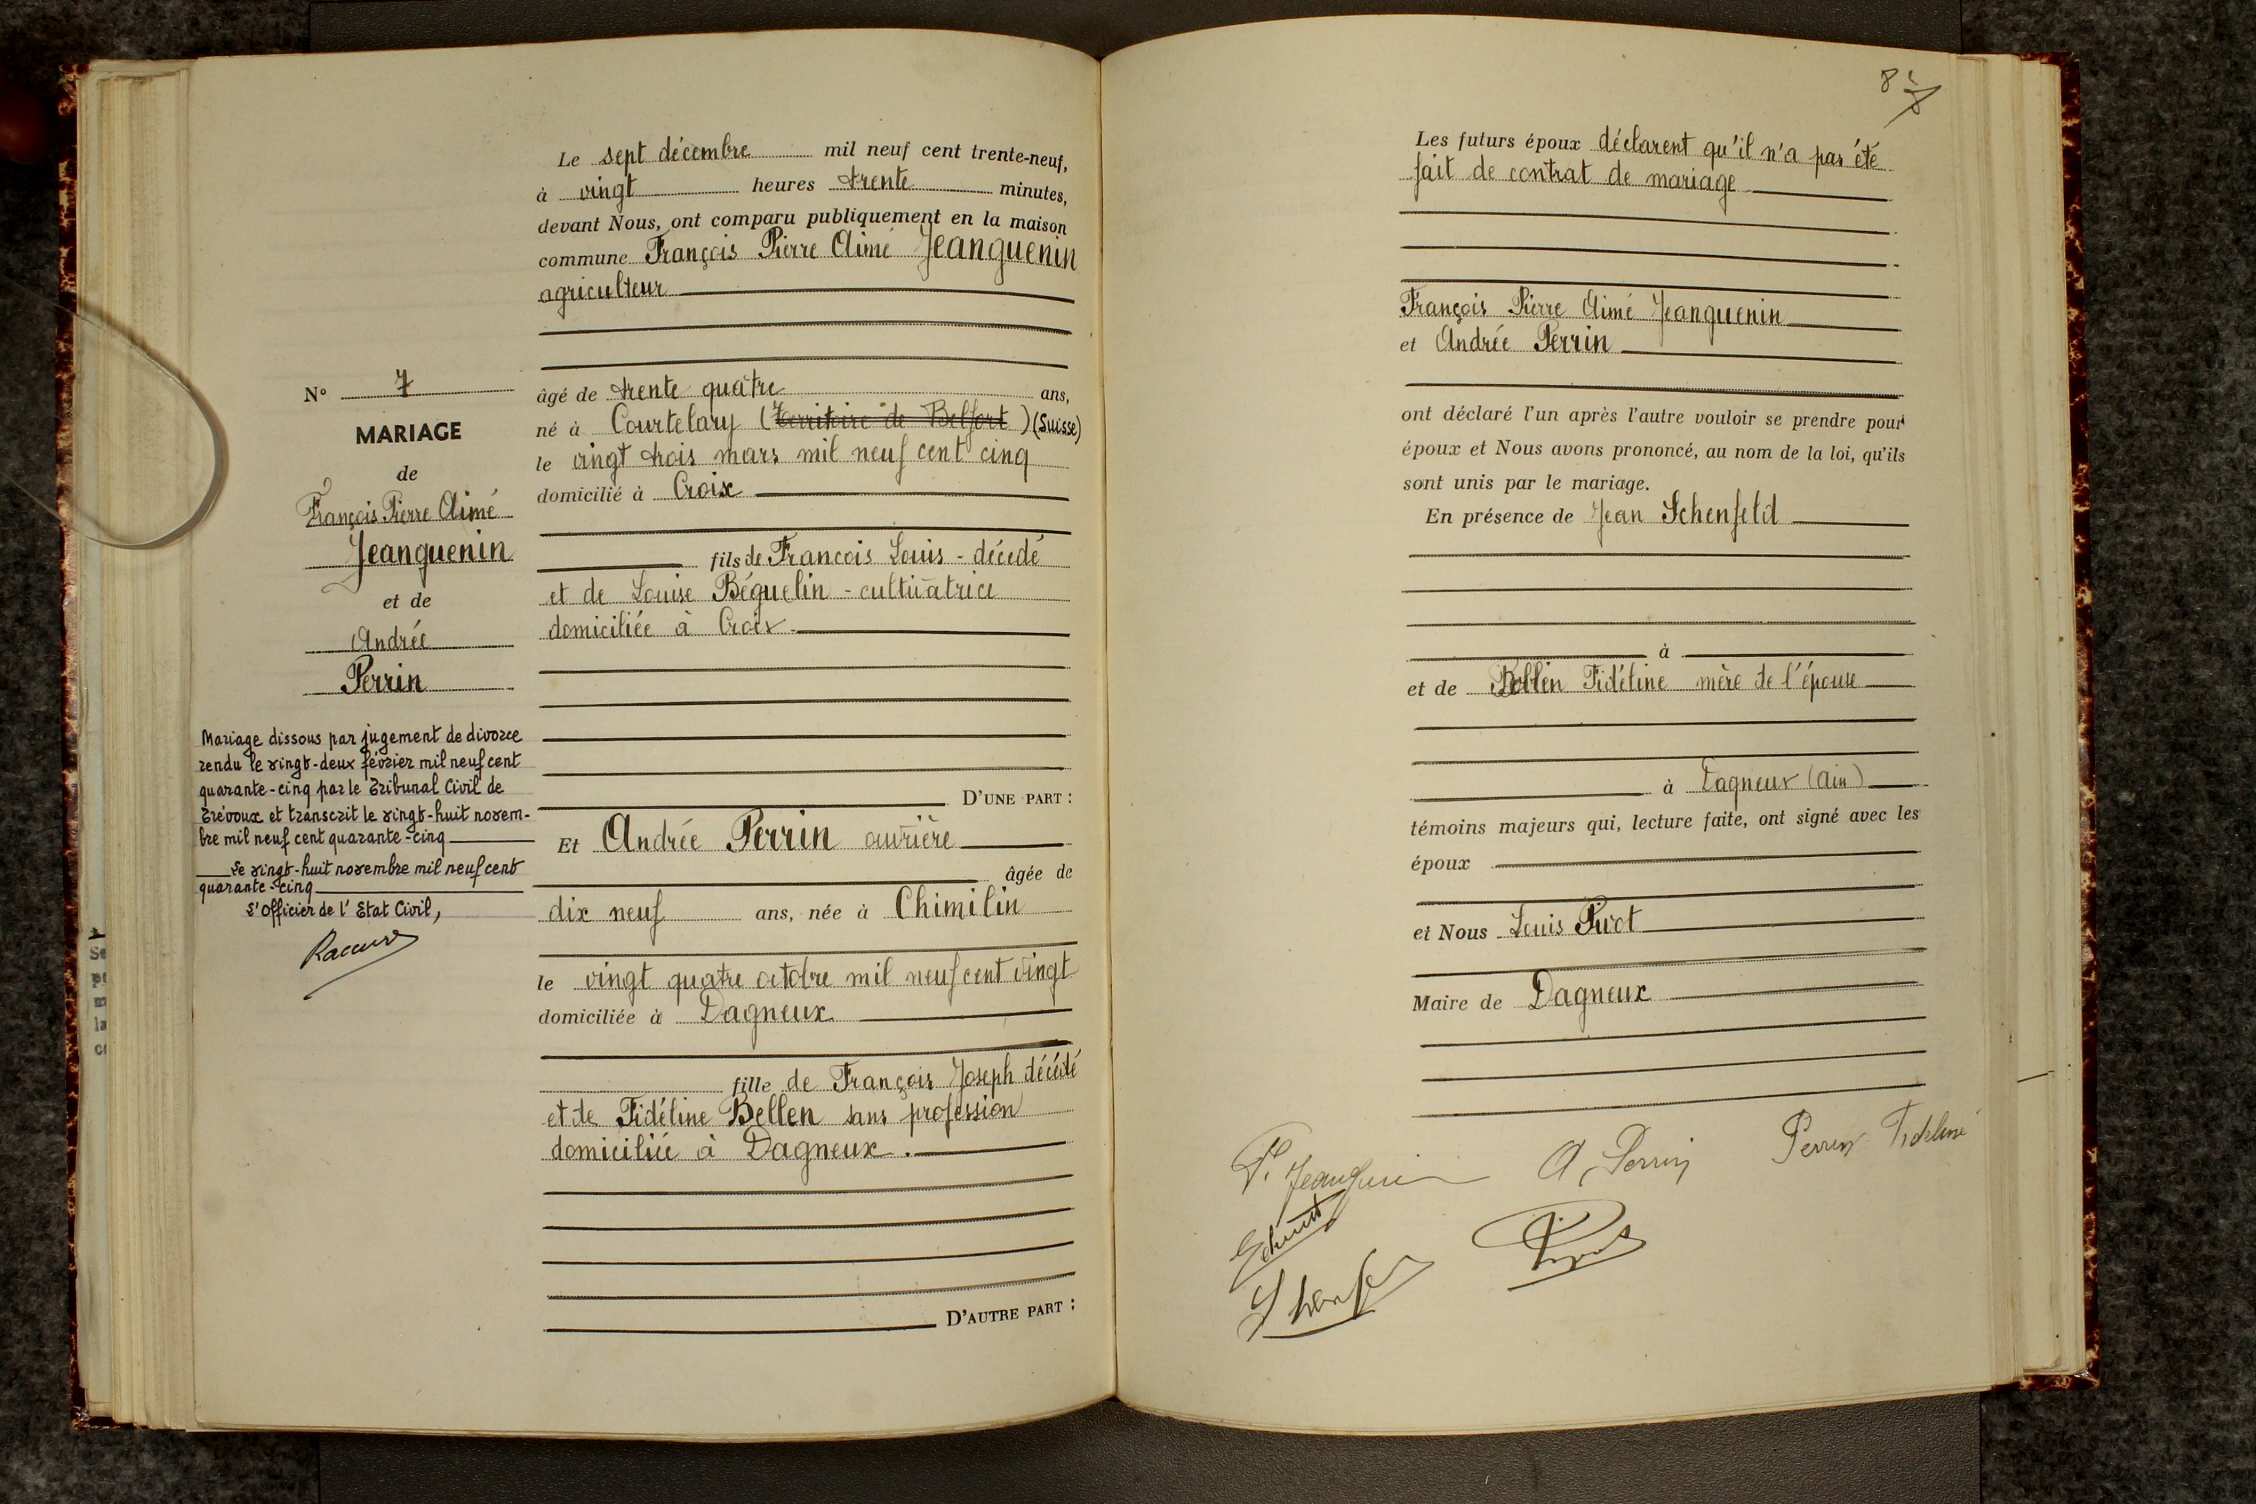 Le sept décembre mil neuf cent trente-neuf,
à vingt heures trente minutes,
devant Nous, ont comparu publiquement en la maison
commune François Pierre Aimé Jeanguenin
agriculteur
âgé de trente quatre ans,
né à Courtelary (Territoire de Belfort) (Suisse)
le vingt trois mars mil neuf cent cinq
domicilié à Croix
fils de Francois Louis - décédé
et de Louise Béguelin - cultivatrice
domiciliée à Croix
D'UNE PART :
Et Andrée Perrin ouvrière
âgée de
dix neuf ans, née à Chimilin
le vingt quatre octobre mil neuf cent vingt
domiciliée à Dagneux
fille de François Joseph décédé
et de Fidéline Bellen sans profession
domiciliée à Dagneux.
D'AUTRE PART :
N° 7
MARIAGE
de
François Pierre Aimé
Jeanguenin
et de
Andrée
Perrin
Mariage dissous par jugement de divorce
rendu le vingt-deux février mil neuf cent
quarante-cinq par le Tribunal Civil de
Trévoux et transcrit le vingt-huit novem-
bre mil neuf cent quarante-cinq
Le vingt-huit novembre mil neuf cent
quarante-cinq
L'Officier de l'Etat Civil,
Les futurs époux déclarent qu'il n'a pas été
fait de contrat de mariage
François Pierre Aimé Jeanguenin
et Andrée Perrin
ont déclaré l'un après l'autre vouloir se prendre pour
époux et Nous avons prononcé, au nom de la loi, qu'ils
sont unis par le mariage.
En présence de Jean Schenfeld
à
et de Bellen Fidéline mère de l'épouse
à Dagneux (Ain)
témoins majeurs qui, lecture faite, ont signé avec les
époux
et Nous Louis Pivot
Maire de Dagneux
A. Perrin
Perrin Fideline